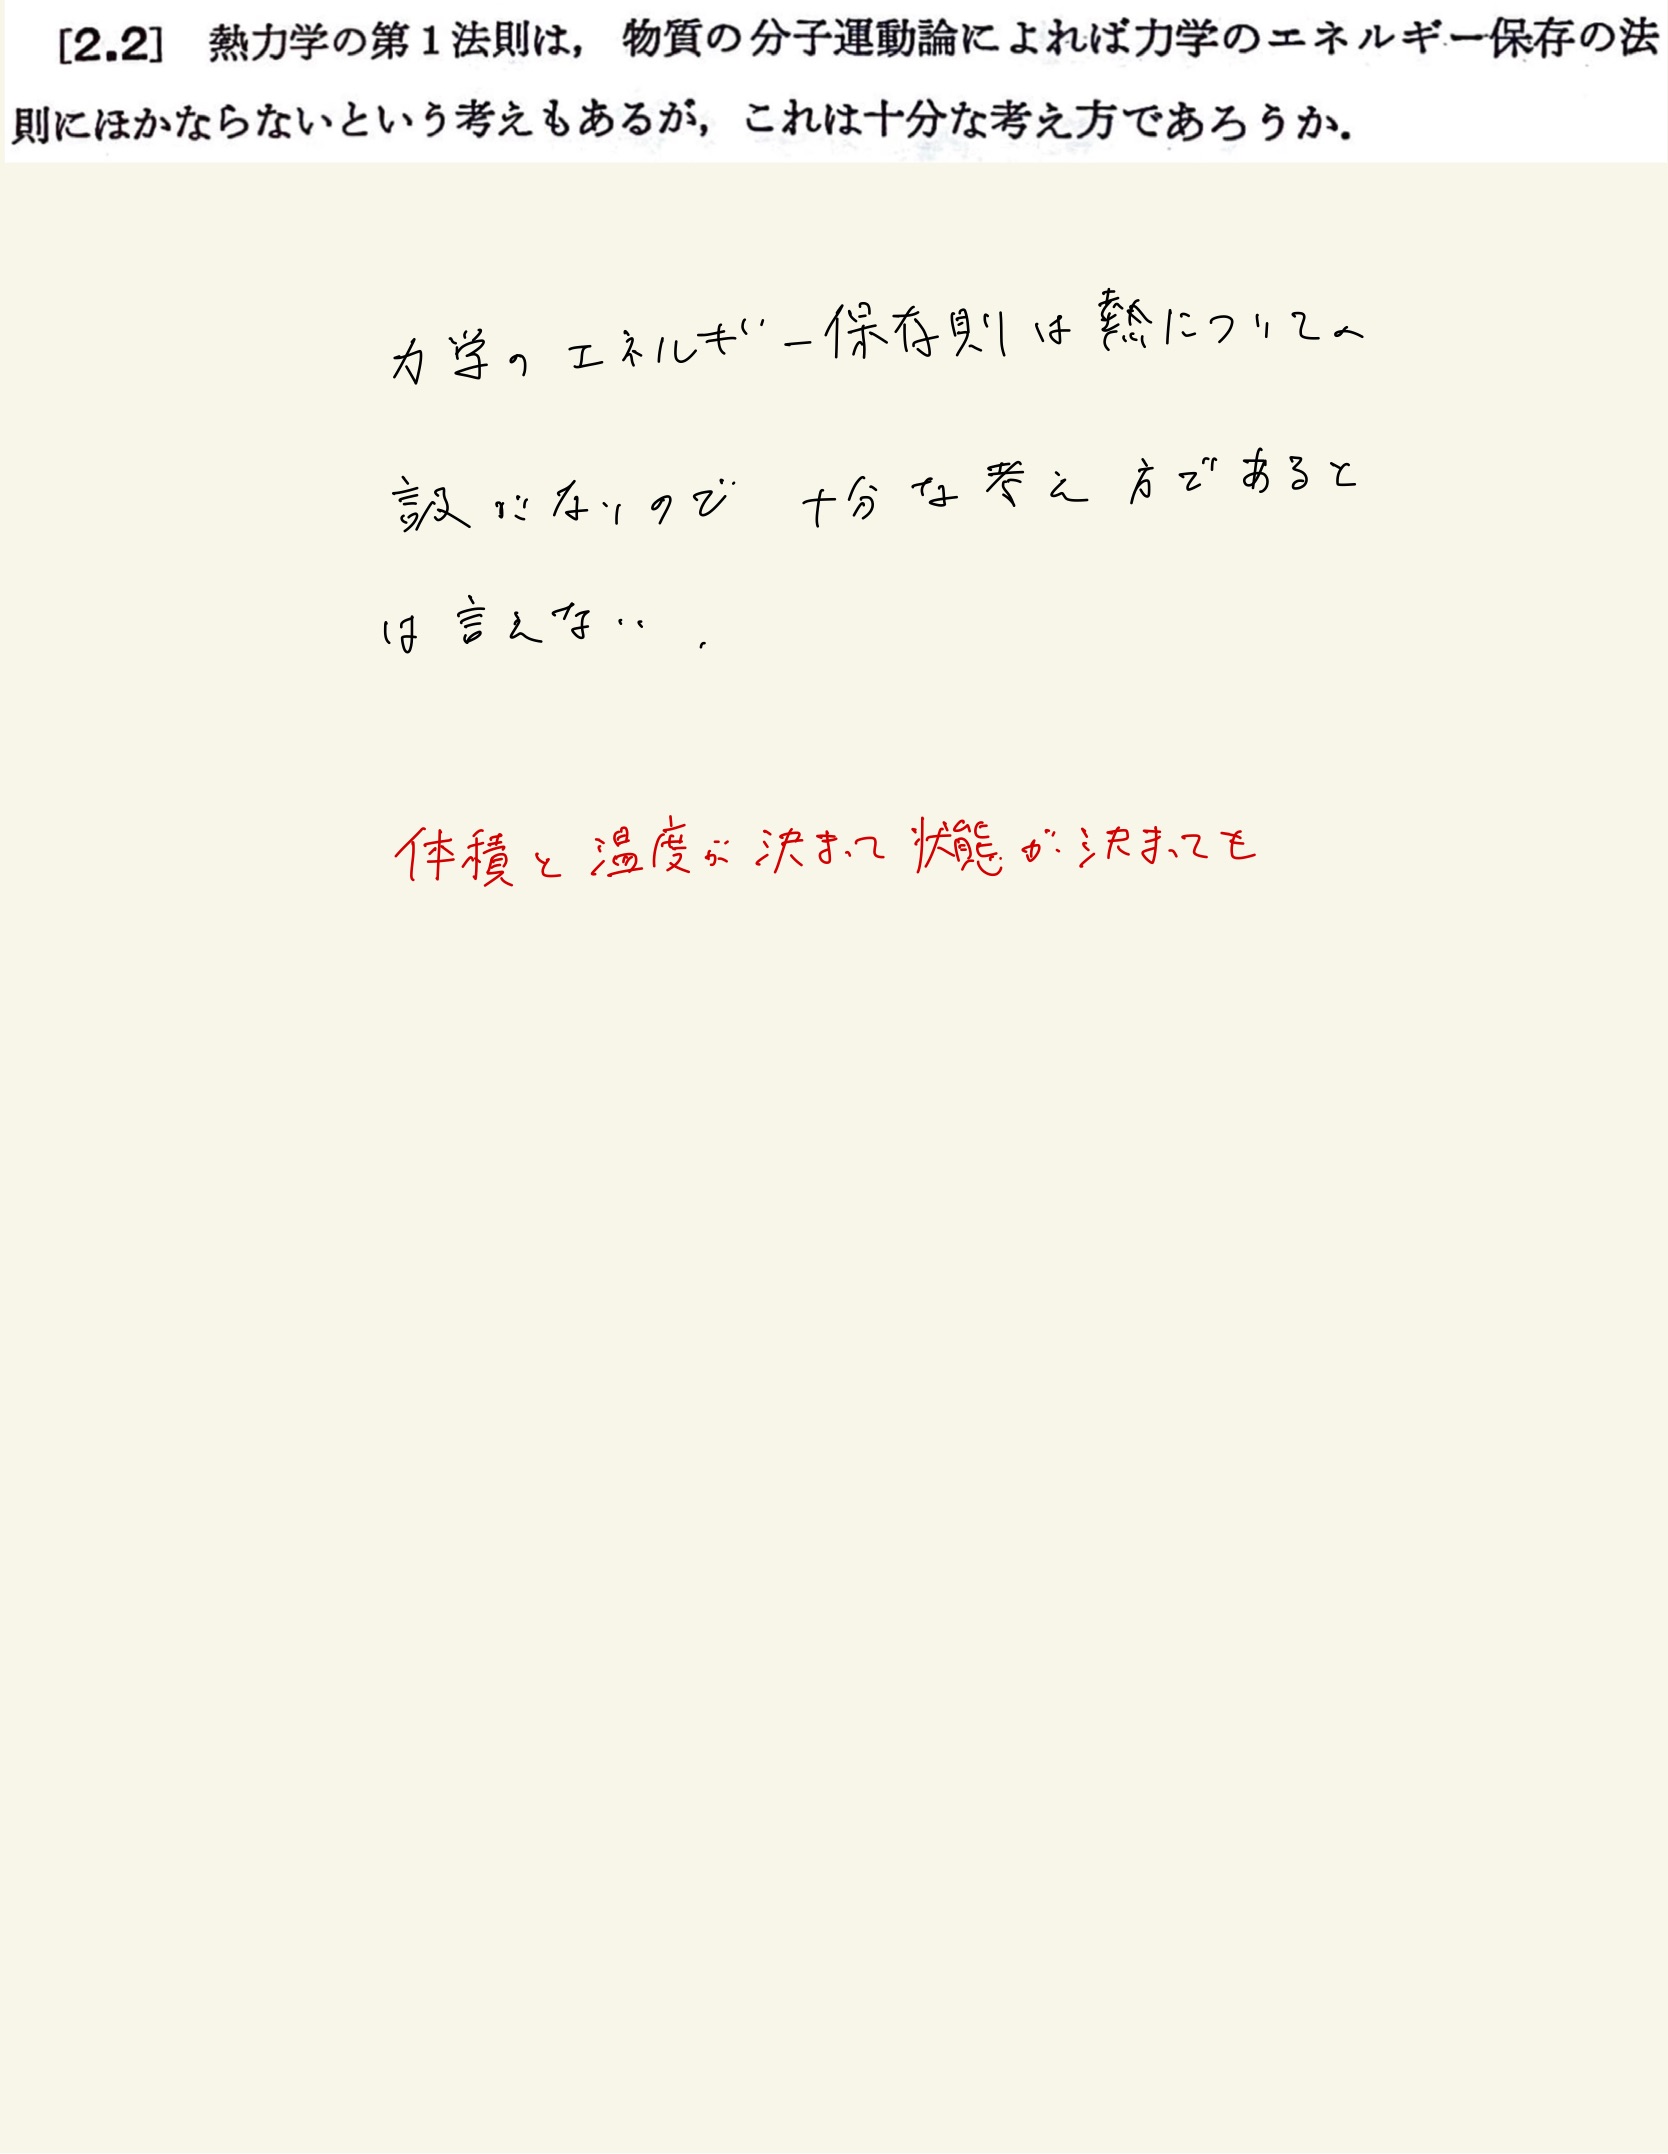 [2.2] 熱力学の第1法則は,物質の分子運動論によれば力学のエネルギー保存の法
則にほかならないという考えもあるが,これは十分な考え方であろうか.
力学のエネルギー保存則は熱についての
設がないので 十分な考え方であると
は言えない.
体積と温度が決まって状態が決まっても